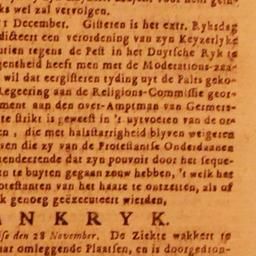 ks wel zal vervolgen.
1 December. Gisteren is het extr. Ryksdag
dicteert een verordening van zyn Keyzerlyke
utien tegens de Pest in het Duytsche Ryk te
gentheid heeft men met de Moderations-zaa-
wil dat eergisteren tyding uyt de Palts geko-
Regeering aan de Religions-Commissie georg
ment aan den over-Amptman van Germers-
te strikt is geweest in 't uytvoeren van de or-
en, die met halstarrigheid blyven weigeren
sen die zy van de Protestantse Onderdaanen
endeerende dat zyn pouvoir door het seque-
en te buyten gegaan zouw hebben, 't welk het
otestanten van het haare te ontzetten, als of
k genoeg geëxecuteert wierden,
ANKRYK.
den 28 November. De Ziekte wakkert te
aar omleggende Plaatsen, en is doorgedron-